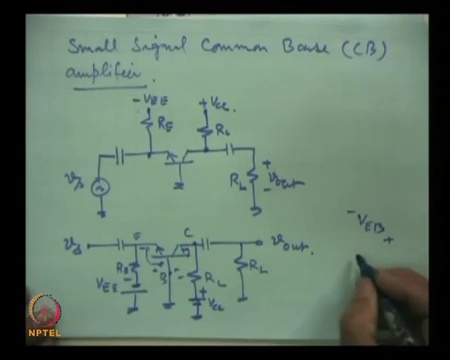 Small Signal Common Base (CB)
amplifier.
-VEE +VCC
RE RL
vs RL + vout -
vs E C vout
RE B RL RL
VEE + VCC
- VEB +
NPTEL